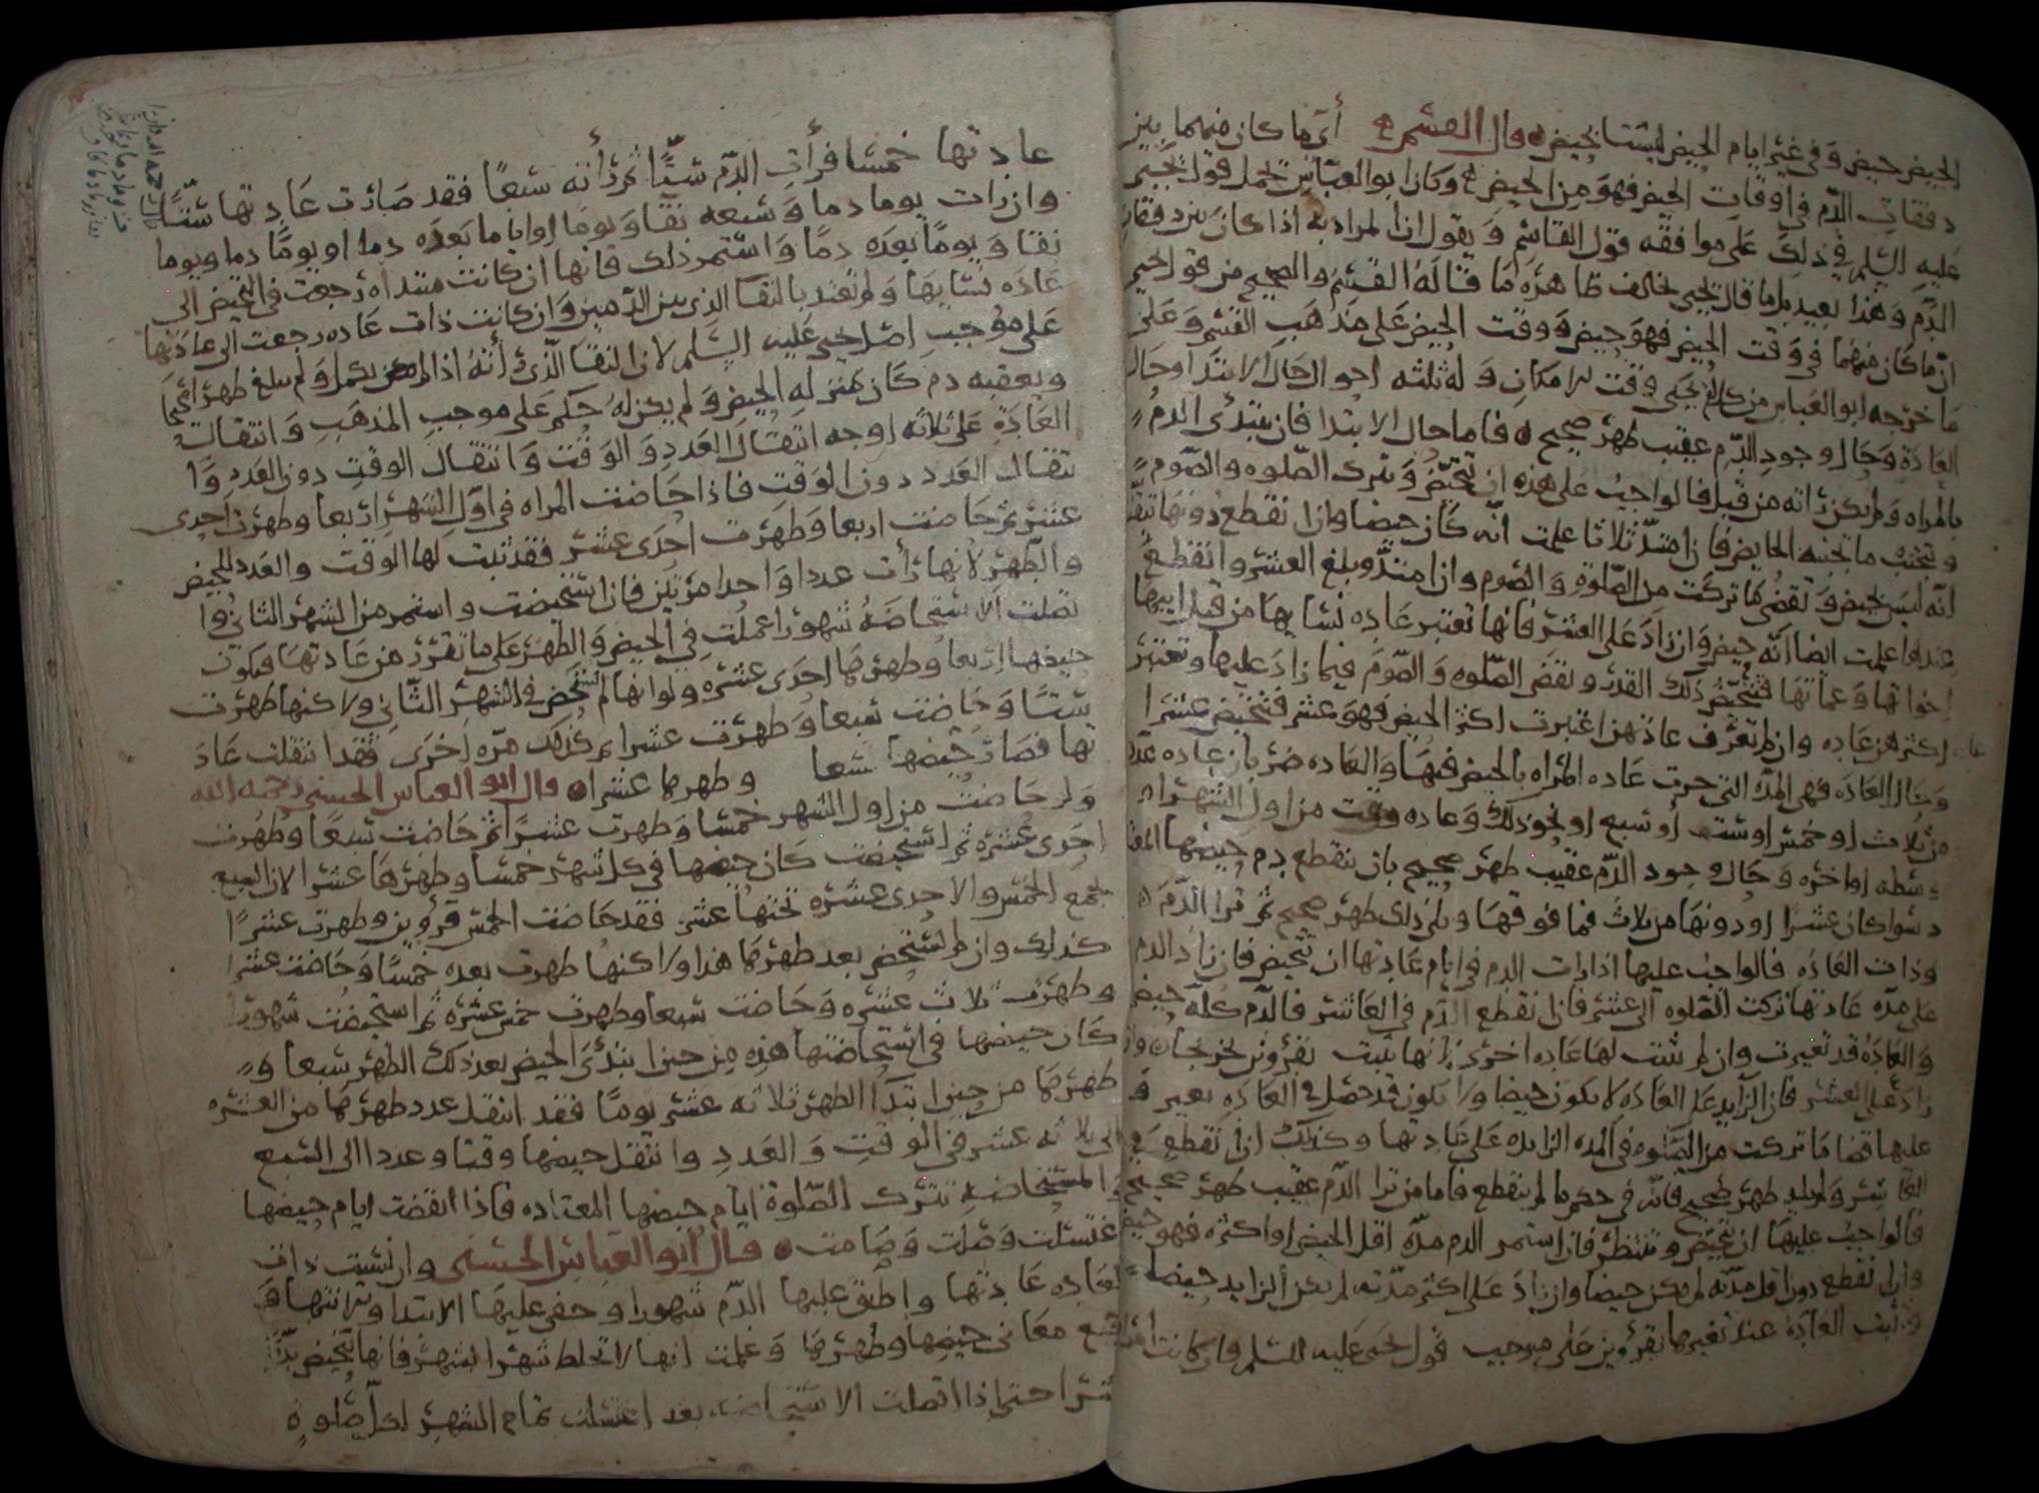 الحيض حيض وفي غير ايام الحيض ليست بحيض قال القسم ع أي ما كان منهما بين
دفقات الدم في اوقات الحيض فهو من الحيض وكان ابو العباس يحمل قول يحيى
عليه السلم في ذلك على موافقه قول القاسم ويقول ان المراد به اذا كان بين دفقات
الدم وهذا بعيد بل ما قال يحيى يخالف ظاهره ما قاله القسم والصحيح من قول يحيى
ان ما كان منهما في وقت الحيض فهو حيض ووقت الحيض على مذهب القسم وعلى
ما خرجه ابو العباس من كلام يحيى وقت الامكان وله ثلثه احوال حال الابتدا وحال
العادة وحال وجود الدم عقيب طهر صحيح فاما حال الابتدا فان يبتدئ الدم
بالمراه ولم يكن راته من قبل فالواجب على هذه ان تتحيض وتترك الصلوه والصوم
وتجتنب ما تجتنبه الحايض فان امتد ثلاثا علمت انه كان حيضا وان انقطع دونها
انه ليس بحيض وتقضي ما تركت من الصلوة والصوم وان امتد وبلغ العشر وانقطع
عندها علمت ايضا انه حيض وان زاد على العشر فانها تعتبر عاده نسايها من قبل ابيها
اخواتها وعماتها فتتحيض ذلك القدر وتقضي الصلوه والصوم فيما زاد عليها وتعتبر
اكثرهن عاده وان لم تعرف عادتهن اعتبرت اكثر الحيض فهو عشر فتتحيض عشرا
وحال العاده فهي المدة التي جرت عاده المراه بالحيض فيها والعاده ضربان عاده عدد
من ثلاث او خمس او ست او سبع او نحو ذلك وعاده وقت من اول الشهر او
وسطه او اخره وحال وجود الدم عقيب طهر صحيح بان ينقطع دم حيضها
سوا كان عشرا او دونها من ثلاث فما فوقها ويلي ذلك طهر صحيح ثم ترا الدم
وذات العاده فالواجب عليها اذا رات الدم في ايام عادتها ان تتحيض فان زاد الدم
على مدة عادتها تركت الصلوه الى عشر فان انقطع الدم في العاشر فالدم كله حيض
والعادة قد تغيرت وان لم تثبت لها عاده اخرى لانها تثبت بقرؤين وان
زاد على العشر فان الزايد على العاده لا يكون حيضا ولا يكون قد حصل في العاده تغير و
عليها قضا ما تركت من الصلوه في المده الزايده على عادتها وكذلك ان انقطع في
العاشر ولم يليه طهر صحيح فانه في حكم ما لم ينقطع فاما من ترا الدم عقيب طهر صحيح
فالواجب عليها ان تتحيض وتنتظر فان استمر الدم مدة اقل الحيض او اكثره فهو حيض
وان انقطع دون اقل مدته لم يكن حيضا وان زاد على اكثر مدته لم يكن الزايد حيضا
وتثبت العادة عند تغيرها بقرؤين على موجب قول يحيى عليه السلم فان كانت
عادتها خمسا فرأت الدم ستا ثم رأته سبعا فقد صارت عادتها ستا
وان رات يوما دما وسبعه نقا ويوما او اياما بعده دما او يوما دما ويوما
نقا ويوما بعده دما واستمر ذلك فانها ان كانت مبتداه رجعت في التحيض الى
عاده نسايها ولم تعتد بالنقا الذي بين الدمين وان كانت ذات عاده رجعت الى عادتها
على موجب اصل يحيى عليه السلم لان النقا الذي رأته اذا لم يكمل ولم يبلغ طهرا صحيحا
ويعقبه دم كان بمنزله الحيض ولم يكن له حكم على موجب المذهب وانتقال
العادة على ثلاثه اوجه انتقال العدد والوقت وانتقال الوقت دون العدد وا
نتقال العدد دون الوقت فاذا حاضت المراه في اول الشهر اربعا وطهرت احدى
عشر ثم حاضت اربعا وطهرت احدى عشر فقد ثبت لها الوقت والعدد للحيض
والطهر لانها رأت عددا واحدا مرتين فان استحيضت واستمر من الشهر الثاني وا
تصلت الاستحاضه شهورا عملت في الحيض والطهر على ما تقرر من عادتها فيكون
حيضها اربعا وطهرها احدى عشره ولو انها لم تستحض في الشهر الثاني ولاكنها طهرت
ستا وحاضت سبعا وطهرت عشرا ثم كذلك مره اخرى فقد انتقلت عاد
تها فصار حيضها سبعا وطهرها عشرا قال ابو العباس الحسني رحمه الله
ولو حاضت من اول الشهر خمسا وطهرت عشرا ثم حاضت سبعا وطهرت
احدى عشره ثم استحيضت كان حيضها في كل شهر خمسا وطهرها عشرا لان السبع
تجمع الخمس والاحدى عشره تحتها عشر فقد حاضت الخمس قرؤين وطهرت عشرا
كذلك وان لم تستحض بعد طهرها هذا ولاكنها طهرت بعده خمسا وحاضت عشرا
وطهرت ثلاث عشره وحاضت سبعا وطهرت خمس عشره ثم استحيضت شهورا
كان حيضها في استحاضتها هذه من حين ابتدئ الحيض بعد ذلك الطهر سبعا و
طهرها من حين ابتدا الطهر ثلاثه عشر يوما فقد انتقل عدد طهرها من العشره
الى ثلاثه عشر في الوقت والعدد وانتقل حيضها وقتا وعددا الى السبع
والمستحاضه تترك الصلوة ايام حيضها المعتاده فاذا انقضت ايام حيضها
اغتسلت وصلت وصامت قال ابو العباس الحسني وان نسيت ذات
العاده عادتها واطبق عليها الدم شهورا وخفي عليها الابتدا والانتها و
معاني حيضها وطهرها وعلمت انها لا تخلط شهرا بشهر فانها تتحيض
عشرا حتى اذا اتصلت الاستحاضه بعد اغتسلت تمام الشهر لكل صلوة